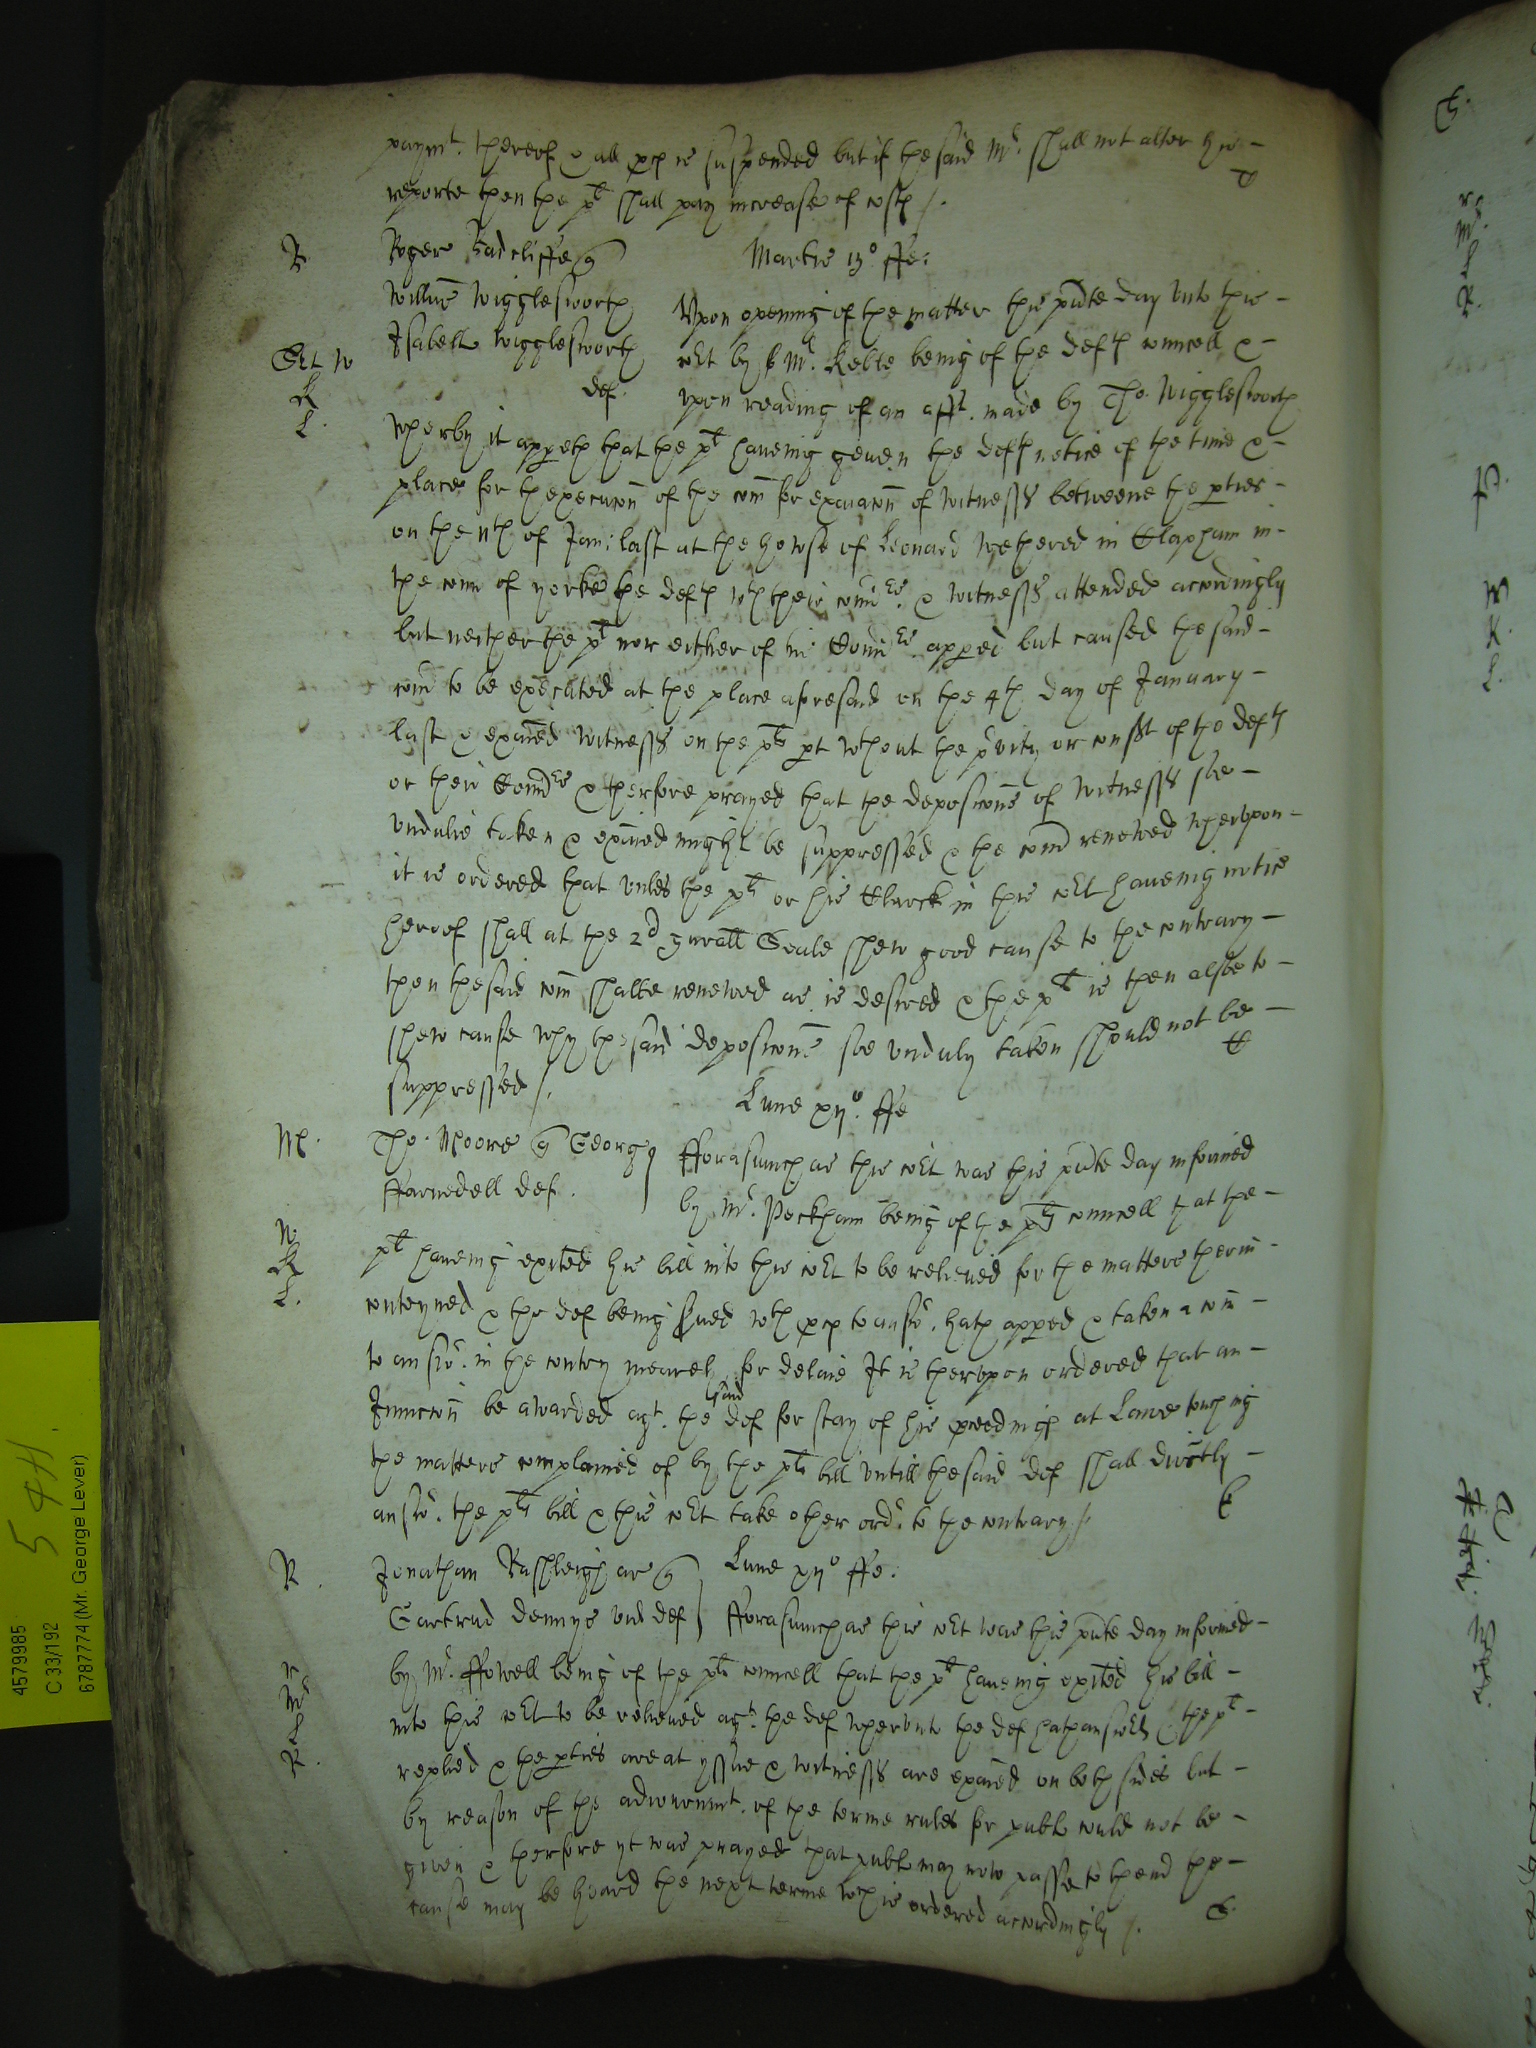 paymt. thereof & all pcs is suspended but if the said Mr. shall not alter his
reporte then the pl shall pay increase of costs /.
T
R
Roger Radcliffe q
Martis 13o ffe:
Willm Wigglesworth
Isabell Wigglesworth
def.
R
L.
Vpon opening of the matter this pnte day vnto this
Cort by Mr. Keble being of the defts councell &
vpon reading of an afft. made by Tho. Wigglesworth
wherby it appeth that the pl haueing geuen the defts notice of the time &
place for thexecucon of the com for exaiacon of witnesses betweene the pties
on the 11th of Jan: last at the howse of Leonard Wethered in Clapham in
the com of yorke the defts wth their comrs. & witnesses attended accordingly
but neither the pl nor either of his Comrs. apped but caused the said
com to be executed at the place aforesaid on the 4th day of January
last & exaied witnesses on the pls pt wthout the privity or consent of the defts
or their Comrs & therfore prayed that the deposicons of witnesses soe
vndulie taken & exaied might be suppressed & the com renewed wherevpon
it is ordered that vnles the pl or his Clarck in this Cort haueing notice
hereof shall at the 2d gnrall Seale shew good cause to the contrary
then the said com shalbe renewed as is desired & the pl is then alsoe to
shew cause why the said deposicons soe vnduly taken should not be
suppressed /.
Lune xijo. ffe
M.
Tho. Moore q Georg
ffarnedell def.
ffora​smuch as this Cort was this pnte day informed
by Mr. Peckham being of the pls councell that the
W
R
L.
pl haueing exited his bill into this Cort to be releiued for the matters therin
conteyned & the def being sued wth pcs to answ. hath apped & taken a com
to answ. in the contry mearely for delaie It is thervpon ordered that an
Iniuncon be awarded agt. the said def for stay of his pceedings at Lawe touching
the matters complained of by the pls bill vntill the said def shall dirctly
answ. the pls bill & this Cort take other ordr. to the contrary /.
R.
Jonathan Rashleigh ar q
Lune xijo ffe.
Gartrud dennys vid def
fforasmuch as this Cort was this pnte day informed
by Mr. ffowell being of the pls councell that the pl haueing exited his bill
into this Cort to be releiued agt. the def wherevnto the def hath answered the pl
R.
replied & the pties are at yssue & witnesses are exaied on both sides but
by reason of the adiournmt. of the terme rules for publ could not be
given & therfore yt was prayed that publ may now passe to thend the
cause may be heard the next terme wch is ordered accordingly /.
4579985
C 33/192
6787774 (Mr. George Lever)